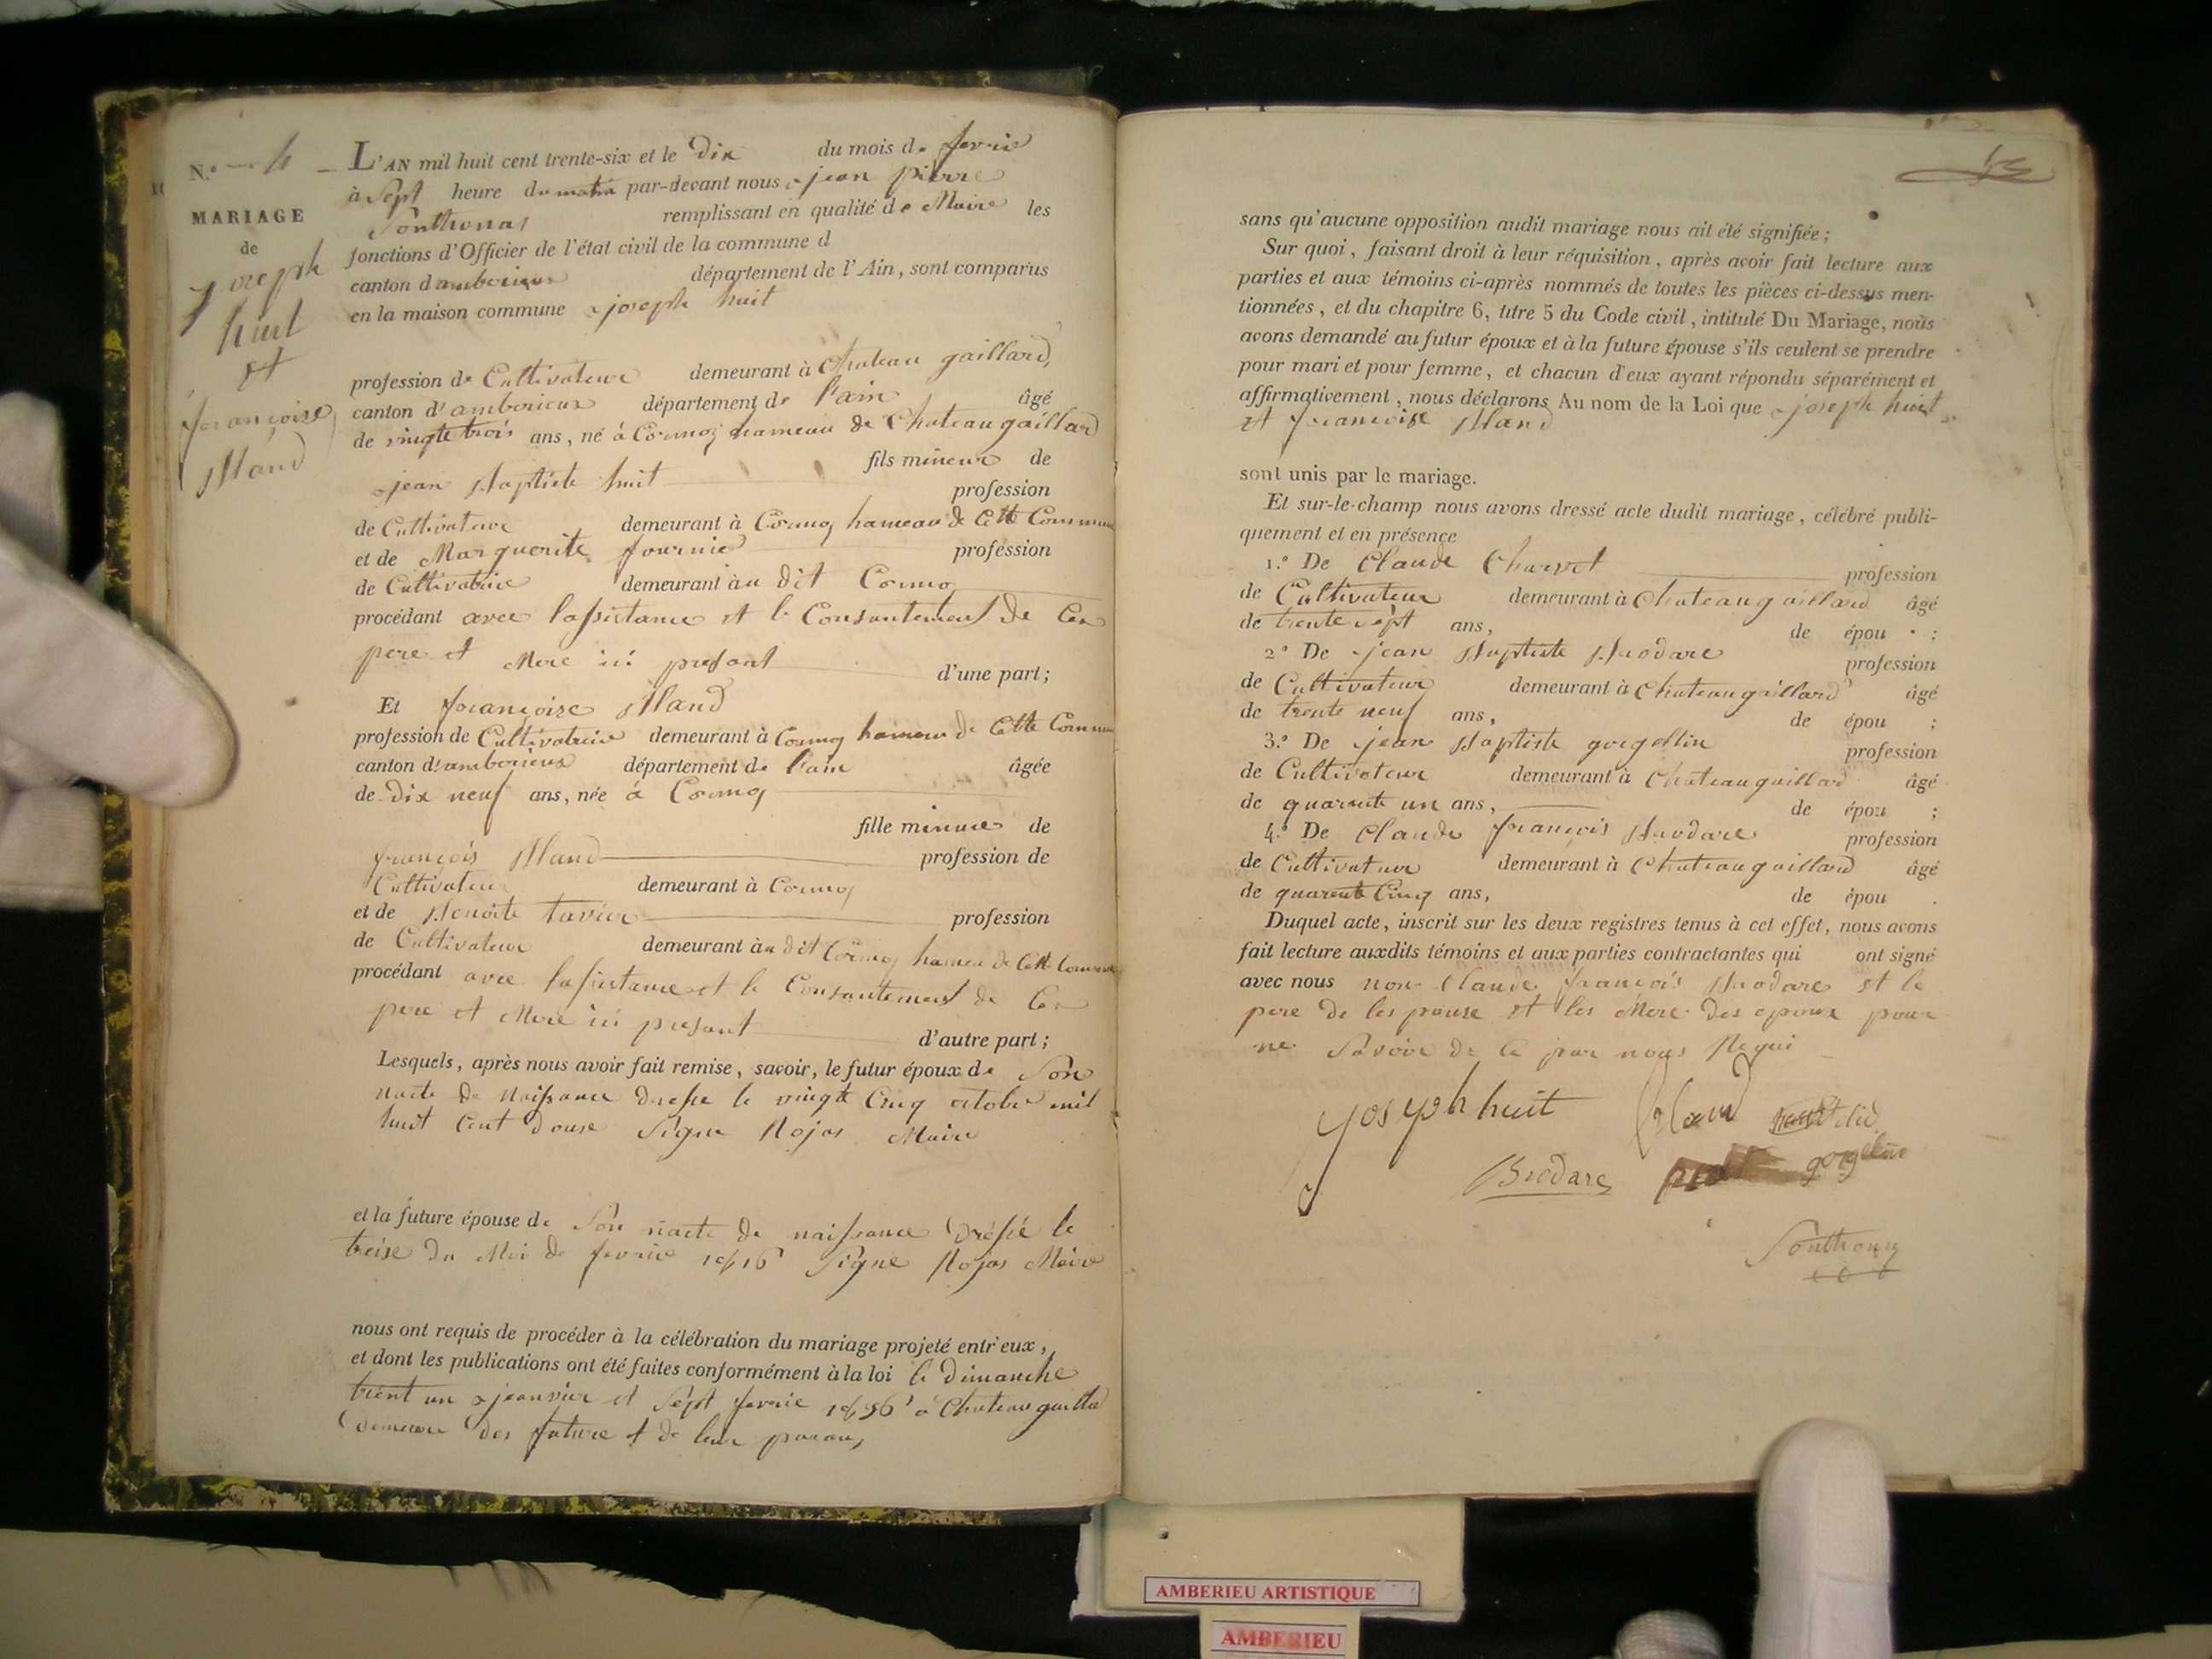 N.º 4
MARIAGE
de
joseph
huit
et
françoise
Bland
L'AN mil huit cent trente-six et le Dix du mois de fevrie
à Sept heure du matin par-devant nous jean pierre
Ponthonas remplissant en qualité de Maire les
fonctions d'Officier de l'état civil de la commune d
canton d amberieux département de l'Ain, sont comparus
en la maison commune joseph huit
profession de Cultivateur demeurant à Chateau gaillard,
canton d'amberieux département de l'ain âgé
de vingte trois ans, né à Cormoz hameau de Chateaugaillard
fils mineur de
jean Baptiste huit profession
de Cultivateur demeurant à Cormoz hameau de Cette Commune
et de Marguerite fournie profession
de Cultivatrice demeurant au dit Cormo
procédant avec lassistance et le Consantement de Ces
pere et Mere ici presant d'une part;
Et françoise Bland
profession de Cultivatrice demeurant à Cormoz hameau de Cette Commune
canton d'amberieux département de l'ain âgée
de Dix neuf ans, née à Cormoz
fille minure de
françois Bland profession de
Cultivateur demeurant à Cormoz
et de Benoite tavier profession
de Cultivateur demeurant au dit Cormoz hameu de Cette Commune
procédant avec lassistance et le Consantement de Ces
pere et Mere ici presant d'autre part;
Lesquels, après nous avoir fait remise, savoir, le futur époux de Son
nacte de Naissance dresse le vingt Cinq octobre mil
huit Cent douse Signe Rojas Maire
et la future épouse de Son nacte de naissance Dréssé le
treise du Moi de fevrie 1816 Signe Rojas Maire
nous ont requis de procéder à la célébration du mariage projeté entr'eux,
et dont les publications ont été faites conformément à la loi le Dimanche
trent un jeanvier et Sept fevrie 1836 à Chateau gaillard
Demeure des future et de leur parans
sans qu'aucune opposition audit mariage nous ait été signifiée;
Sur quoi, faisant droit à leur réquisition, après avoir fait lecture aux
parties et aux témoins ci-après nommés de toutes les pièces ci-dessus men-
tionnées, et du chapitre 6, titre 5 du Code civil, intitulé Du Mariage, nous
avons demandé au futur époux et à la future épouse s'ils veulent se prendre
pour mari et pour femme, et chacun d'eux ayant répondu séparément et
affirmativement, nous déclarons Au nom de la Loi que joseph huit
et françoise Bland
sont unis par le mariage.
Et sur-le-champ nous avons dressé acte dudit mariage, célébré publi-
quement et en présence
1.º De Claude Charvet profession
de Cultivateur demeurant à Chateaugaillard âgé
de trente sept ans, de épou ;
2º De jean Baptiste Brodare profession
de Cultivateur demeurant à Chateaugaillard âgé
de trente neuf ans, de épou ;
3.º De jean Baptiste gorgellin profession
de Cultivateur demeurant à Chateaugaillard âgé
de quarante un ans, de épou ;
4.º De Claude françois Brodare profession
de Cultivateur demeurant à Chateaugaillard âgé
de quarente Cinq ans, de épou .
Duquel acte, inscrit sur les deux registres tenus à cet effet, nous avons
fait lecture auxdits témoins et aux parties contractantes qui ont signé
avec nous non Claude françois Brodare et le
pere de les pouse et les Mere des epoux pour
ne Savoir de ce par nous Requi
yosyph huit Bland
Brodare gorgelin
Ponthonas
AMBERIEU ARTISTIQUE
AMBERIEU